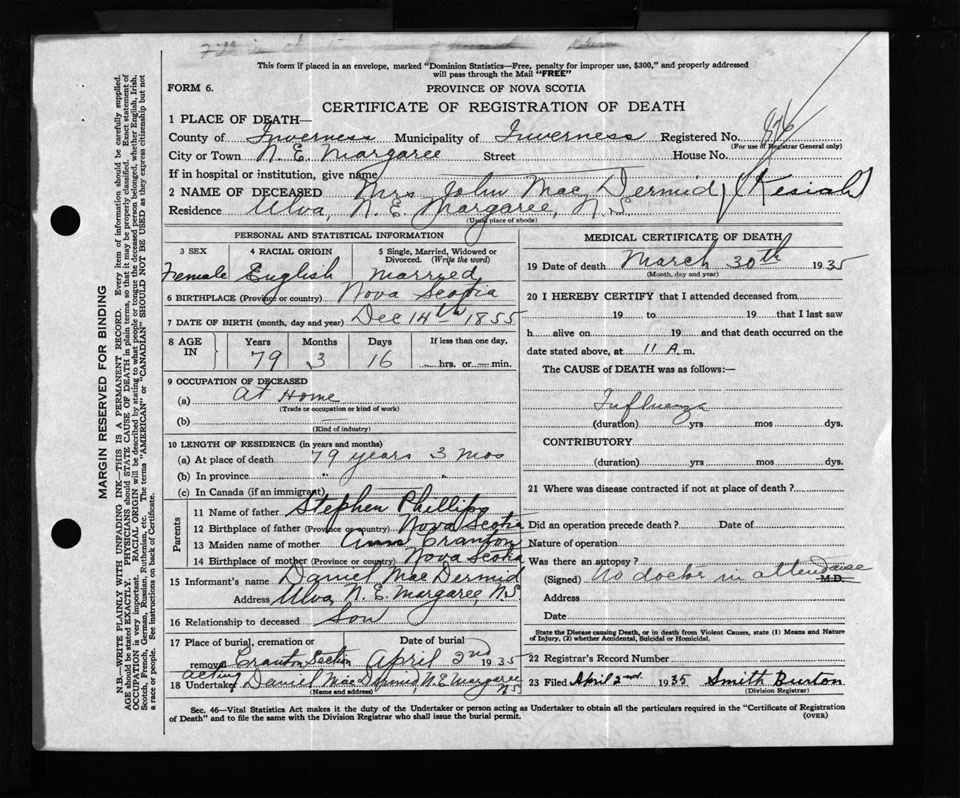 This form if placed in an envelope, marked "Dominion Statistics—Free, penalty for improper use, $300," and properly addressed
will pass through the Mail "FREE"
FORM 6.
PROVINCE OF NOVA SCOTIA
CERTIFICATE OF REGISTRATION OF DEATH
1 PLACE OF DEATH—
County of Inverness Municipality of Inverness Registered No.
(For use of Registrar General only)
City or Town N. E. Margaree Street House No.
If in hospital or institution, give name
2 NAME OF DECEASED Mrs John Mac Dermid (Kesiah)
Residence Ulva, N. E. Margaree, N.S.
(Usual place of abode)
PERSONAL AND STATISTICAL INFORMATION
3 SEX 4 RACIAL ORIGIN 5 Single, Married, Widowed or
Divorced. (Write the word)
Female English Married
6 BIRTHPLACE (Province or country) Nova Scotia
7 DATE OF BIRTH (month, day and year) Dec 14th 1855
8 AGE IN Years Months Days If less than one day,
79 3 16 hrs. or min.
9 OCCUPATION OF DECEASED
(a) At Home
(Trade or occupation or kind of work)
(b)
(Kind of industry)
10 LENGTH OF RESIDENCE (in years and months)
(a) At place of death 79 years 3 mos
(b) In province " "
(c) In Canada (if an immigrant)
Parents
11 Name of father Stephen Phillips
12 Birthplace of father (Province or country) Nova Scotia
13 Maiden name of mother Ann Cranton
14 Birthplace of mother (Province or country) Nova Scotia
15 Informant's name Daniel MacDermid
Address Ulva, N. E. Margaree, N.S
16 Relationship to deceased Son
17 Place of burial, cremation or Date of burial
removal Cranton Section April 2nd 1935
acting
18 Undertaker Daniel MacDermid, N.E Margaree
N.S.
(Name and address)
MEDICAL CERTIFICATE OF DEATH
19 Date of death March 30th 1935
(Month, day and year)
20 I HEREBY CERTIFY that I attended deceased from
19 to 19 that I last saw
h alive on 19 and that death occurred on
date stated above, at 11 A. m.
The CAUSE of DEATH was as follows:—
Influenza
(duration) yrs mos dys.
CONTRIBUTORY
(duration) yrs mos dys.
21 Where was disease contracted if not at place of death?
Did an operation precede death? Date of
Nature of operation
Was there an autopsy?
(Signed) No doctor in attendance M.D.
Address
Date
State the Disease causing Death, or in death from Violent Causes, state (1) Means and Nature
of Injury, (2) whether Accidental, Suicidal or Homicidal.
22 Registrar's Record Number
23 Filed April 2nd 1935 Smith Burton
(Division Registrar)
Sec. 46—Vital Statistics Act makes it the duty of the Undertaker or person acting as Undertaker to obtain all the particulars required in the "Certificate of Registration
of Death" and to file the same with the Division Registrar who shall issue the burial permit.
(OVER)
MARGIN RESERVED FOR BINDING
N.B.—WRITE PLAINLY WITH UNFADING INK—THIS IS A PERMANENT RECORD. Every item of information should be carefully supplied.
AGE should be stated EXACTLY. PHYSICIANS should STATE CAUSE OF DEATH in plain terms, so that it may be properly classified. Exact statement of
OCCUPATION is very important. RACIAL ORIGIN will be described by stating to what people or tongue the deceased person belonged, whether English, Irish,
Scotch, French, German, Russian, Ruthenian, etc. The terms "AMERICAN" or "CANADIAN" SHOULD NOT BE USED as they express citizenship but not
a race or people. See instructions on back of Certificate.